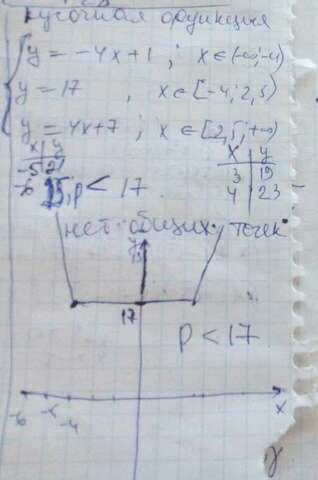 кусочная функция
y = -4x+1 ; x∈(-∞;-4)
y = 17 , x∈[-4;2,5)
y = 4x+7 ; x∈[2,5;+∞)
x | y
-5 | 21
-6 | 25
p < 17
x | y
3 | 19
4 | 23
нет общих точек
y
17
p < 17
-6 -4 x